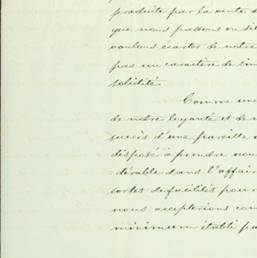 produite par la vente d
que nous passons en sil
voulons écarter de notre
pas un caractère de sim
solidité.
Comme une
de notre loyauté et de n
succès d'une pareille e
disposé à prendre nou
dérable dans l'affair
sortes de facilités pour
nous accepterions com
minimum établi pa